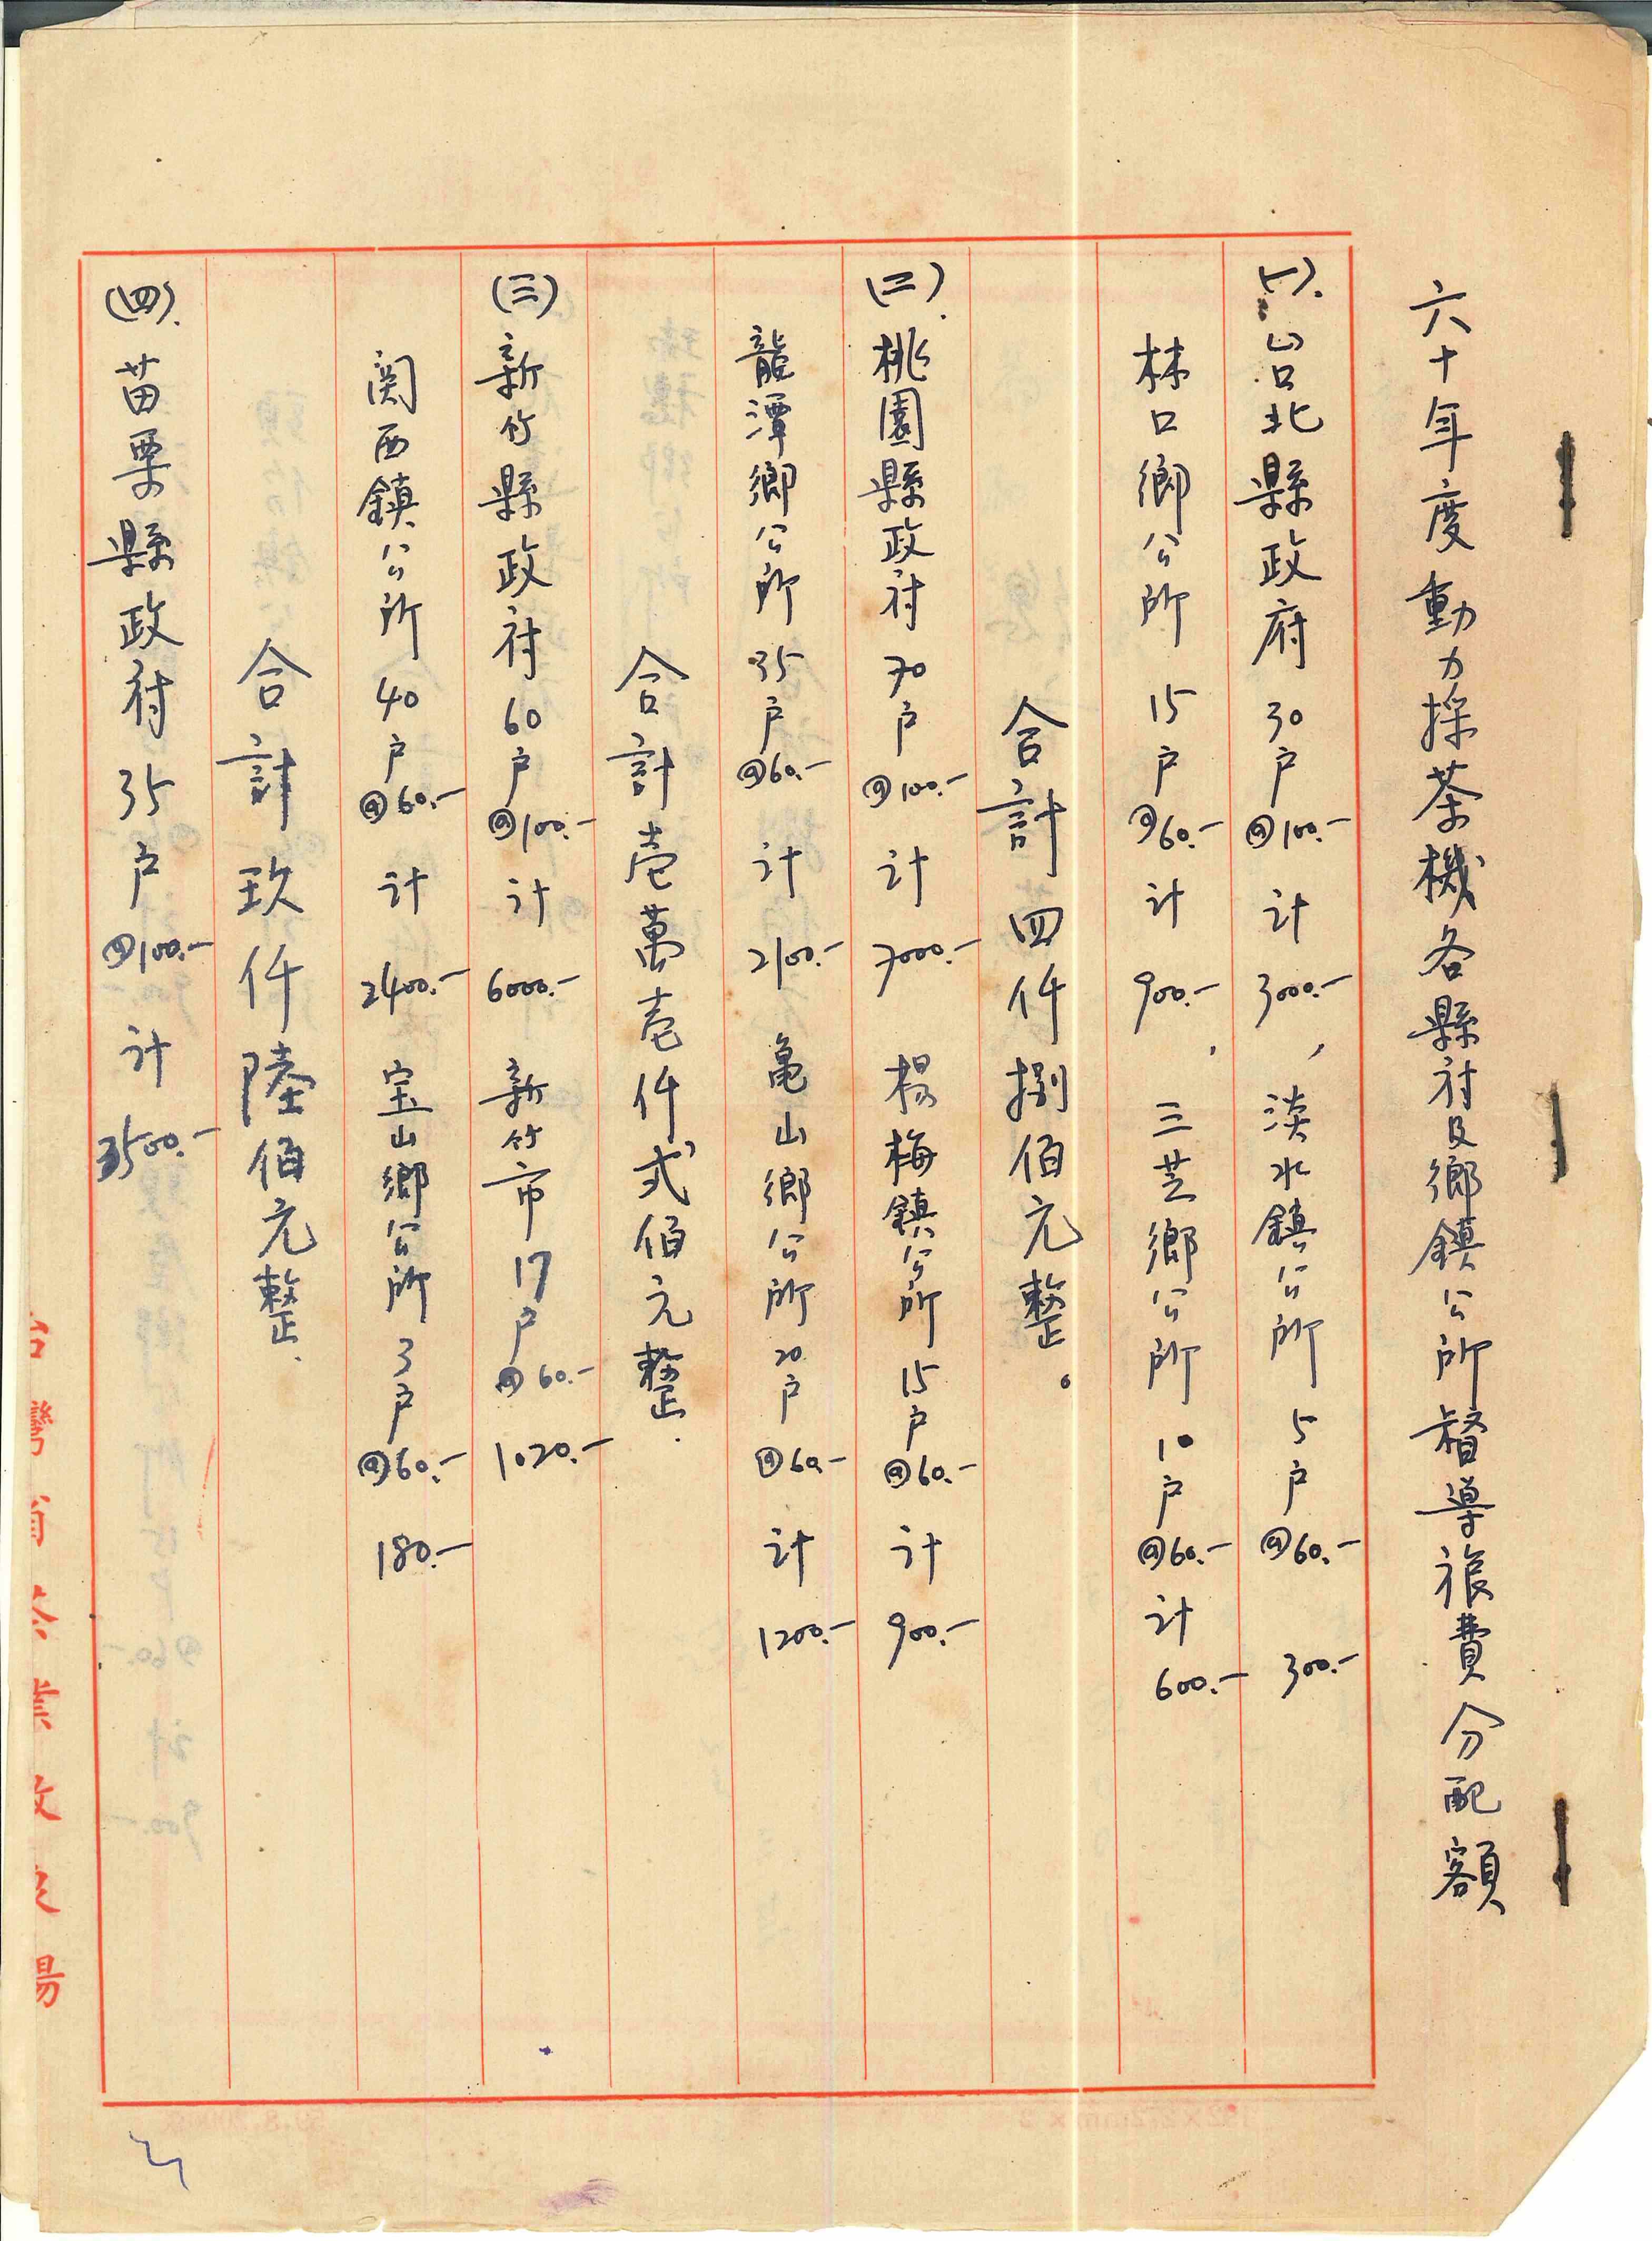 六十年度動力採茶機各縣府及鄉鎮公所督導旅費分配額
(一).台北縣政府 30户@100.- 計 3000.-, 淡水鎮公所 5户@60.- 300.-
林口鄉公所 15户@60.- 計 900.-, 三芝鄉公所 10户@60.- 計 600.-
合計四仟捌佰元整。
(二).桃園縣政府 70户@100.- 計 7000.- 楊梅鎮公所 15户@60.- 計 900.-
龍潭鄉公所 35户@60.- 計 2100.- 亀山鄉公所 20户@60.- 計 1200.-
合計壱萬壱仟弍佰元整.
(三)新竹縣政府 60户@100.- 計 6000.- 新竹市 17户@60.- 1020.-
関西鎮公所 40户@60.- 計 2400.- 宝山鄉公所 3户@60.- 180.-
合計玖仟陸佰元整.
(四).苗栗縣政府 35户@100.- 計 3500.-